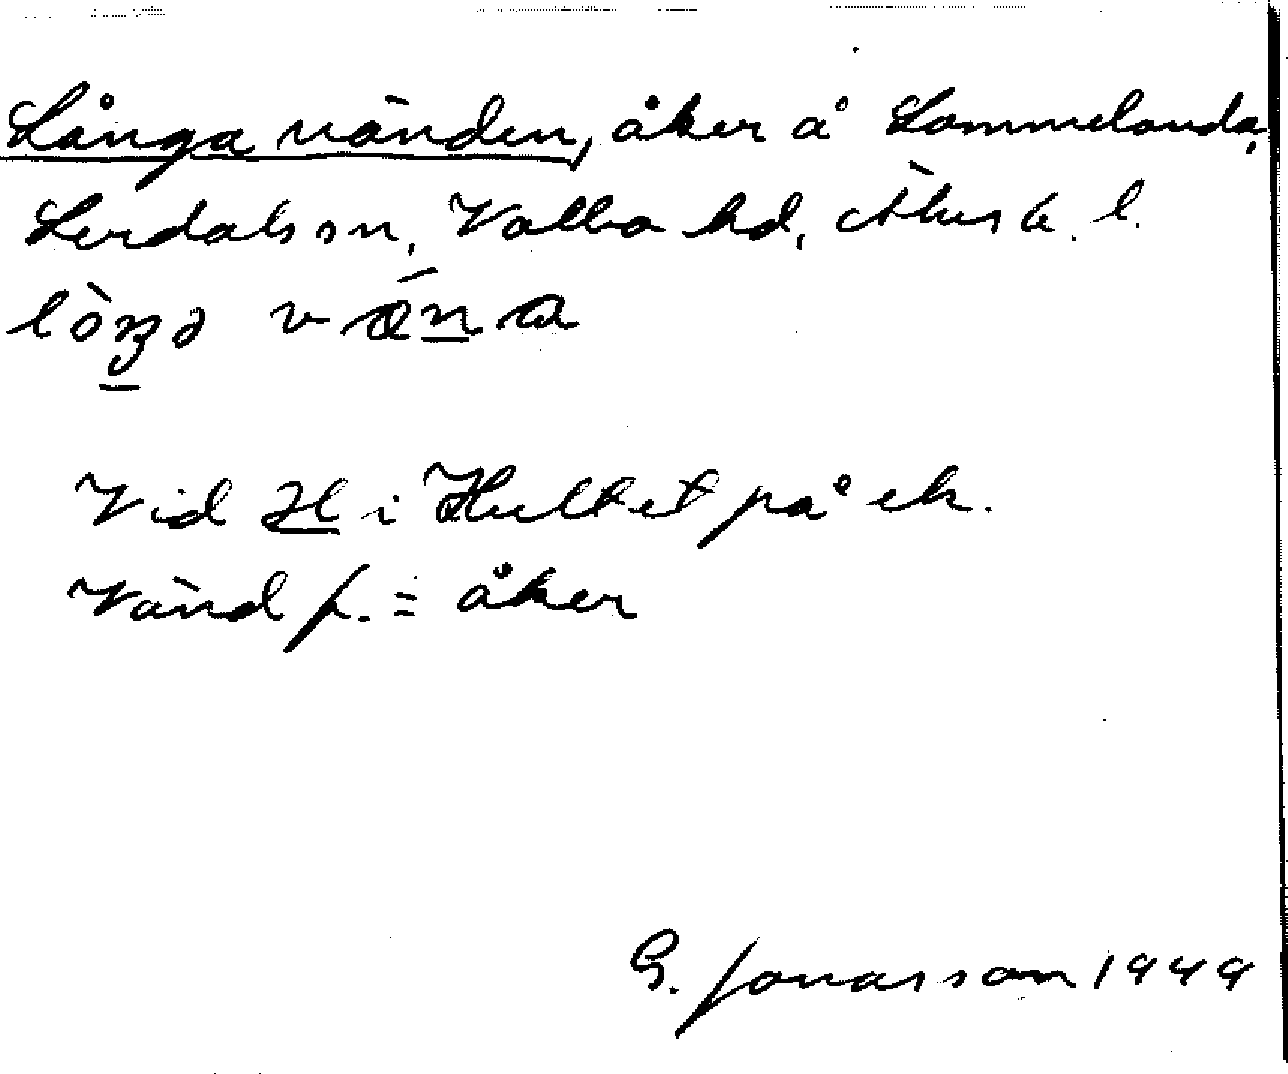 Långa vänden, åker å Lommelanda,
Lerdals sn, Valbo hd, Älvsb. l.
lòŋə vǽna
Vid H i Hultet på ek.
Vänd f. = åker
G. Jonasson 1949